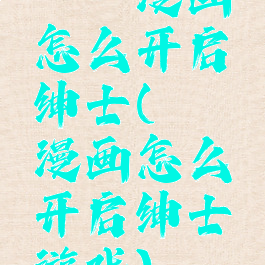 漫画
怎么开启
绅士(
漫画怎么
开启绅士
游戏)